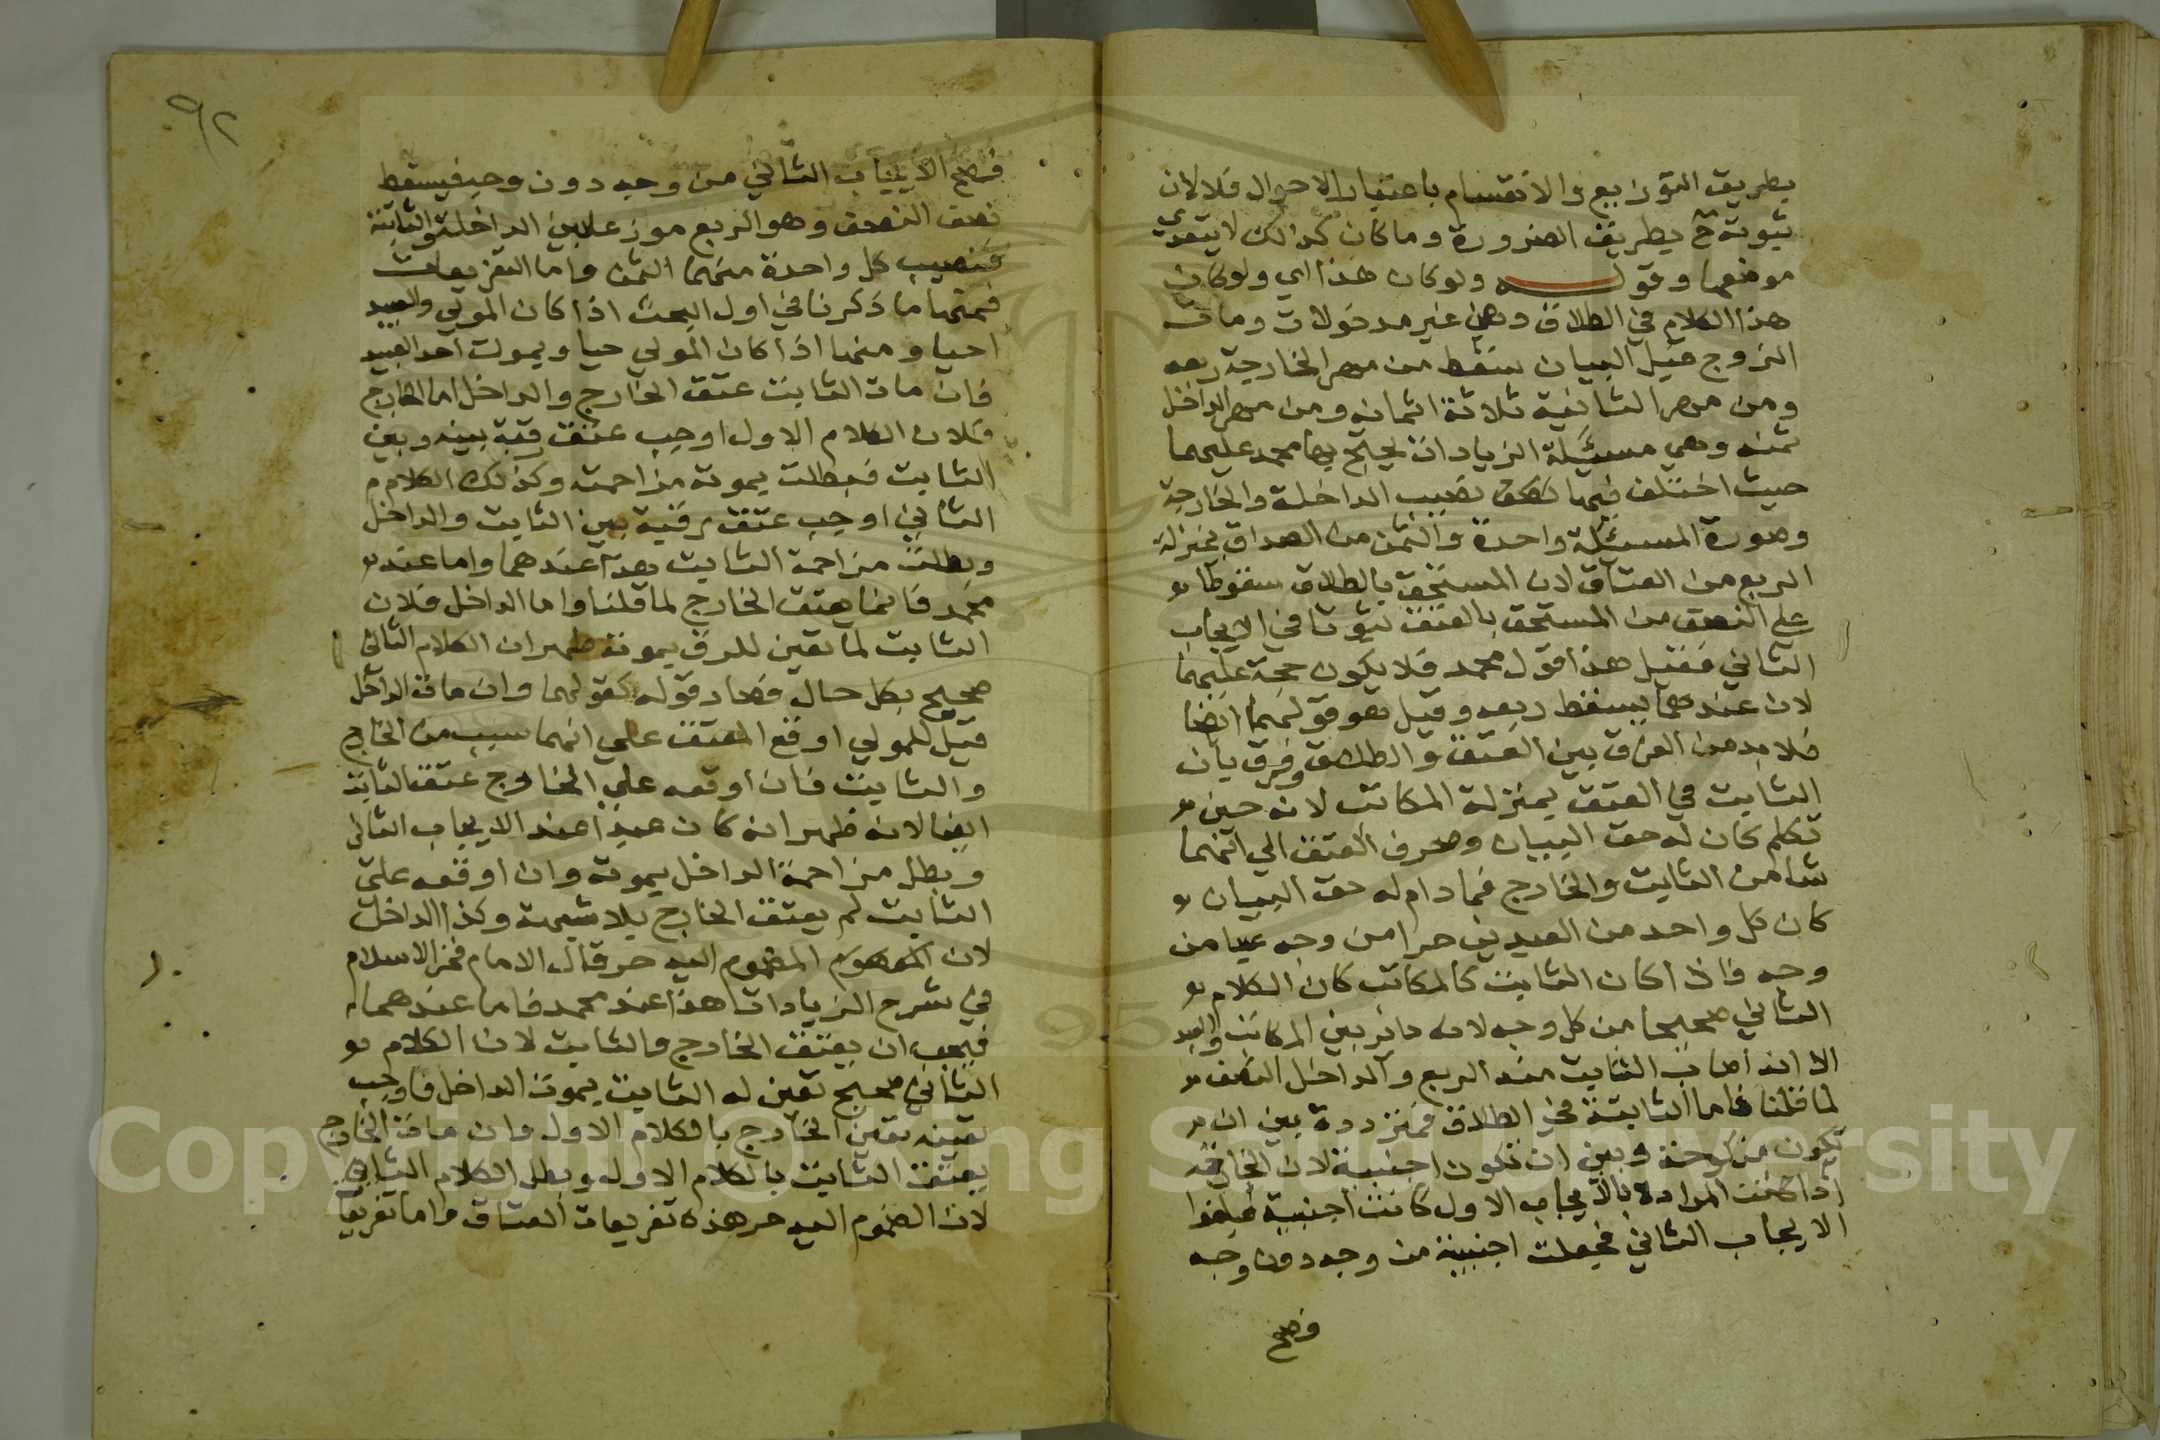 بطريق التوزيع والانقسام باعتبار الاحوال فلا لان
ثبوته ثم بطريق الضرورة وما كان كذالك لا يتعدي
موضعها وقوله ولو كان هذا اي ولو كان
هذا الكلام في الطلاق وهن غير مدخولات ومات
الزوج قبل البيان سقط من مهر الخارجة ربعه
ومن مهر الثانية ثلاثة اثمانه ومن مهر الداخل
ثمنه وهي مسئلة الزيادات يحتج بها محمد عليهما
حيث اختلف فيها نصيب الداخلة والخارجة
وصورة المسئلة واحدة والثمن من الصداق بمنزلة
الربع من العتاق لان المستحق بالطلاق سقوطا
علي النصف من المستحق بالعتق ثبوتا في الايجاب
الثاني فقيل هذا قول محمد فلا يكون حجة عليهما
لان عندهما يسقط ربعه وقيل هو قولهما ايضا
فلا بد من الفرق بين العتق والطلاق وفرق بان
الثابت في العتق بمنزلة المكاتب لانه حين
تكلم كان له حق البيان وصرف العتق الي ايهما
شا من الثابت والخارج فما دام له حق البيان
كان كل واحد من العبدين حرا من وجه عبدا من
وجه فاذا كان الثابت كالمكاتب كان الكلام
الثاني صحيحا من كل وجه لانه دائر بين المكاتب والعبد
الا انه اصاب الثابت منه الربع والداخل النصف
لما قلنا فاما الثابتة في الطلاق فمترددة بين ان
تكون منكوحة وبين ان تكون اجنبية لان الخارجة
اذا كانت المرادة بالايجاب الاول كانت اجنبية فيلغوا
الايجاب الثاني فجعلت اجنبية من وجه دون وجه
فصح
٩٢
فصح الايجاب الثاني من وجه دون وجه فيسقط
نصف النصف وهو الربع موزعا بين الداخلة والثابتة
فنصيب كل واحدة منهما الثمن واما التفريعات
فمنها ما ذكرنا في اول البحث اذا كان المولي والعبيد
احيا ومنها اذا كان المولي حيا ويموت احد العبيد
فان مات الثابت عتق الخارج والداخل اما الخارج
فلان الكلام الاول اوجب عتق رقبة بينه وبين
الثابت فبطلت بموته مزاحمته وكذلك الكلام
الثاني اوجب عتق رقبة بين الثابت والداخل
وبطلت مزاحمة الثابت بعد عندهما واما عند
محمد فانما يعتق الخارج لما قلنا واما الداخل فلان
الثابت لما تعين للرق بموته ظهر ان الكلام الثاني
صحيح بكل حال فصار قوله كقولهما وان مات الداخل
قيل للمولي اوقع العتق علي ايهما شيت من الخارج
والثابت فان اوقعه علي الخارج عتق الثابت
ايضا لانه ظهر انه كان عبدا عند الايجاب الثاني
وبطل مزاحمة الداخل بموته وان اوقعه علي
الثابت لم يعتق الخارج بلا شبهة وكذا الداخل
لان المضموم اليه حر قال الامام فخر الاسلام
في شرح الزيادات هذا عند محمد فاما عندهما
فيجب ان يعتق الخارج والثابت لان الكلام
الثاني صحيح تعين له الثابت بموت الداخل فاوجب
تعينه تعين الخارج بالكلام الاول وان مات الخارج
يعتق الثابت بالكلام الاول وبطل الكلام الثاني
لان المضموم اليه حر هذه تفريعات العتاق واما تفريعات
Copyright © King Saud University